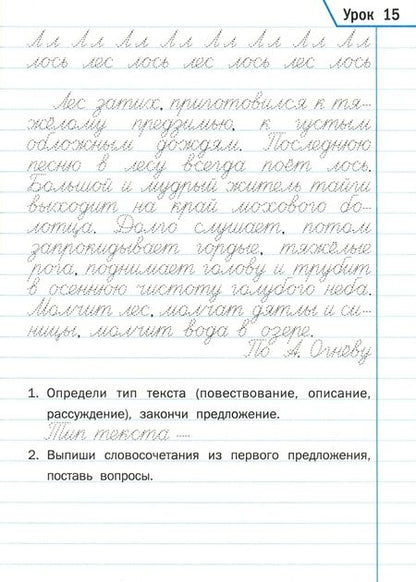 Урок 15
Лл Лл Лл Лл Лл Лл Лл Лл
лось лес лось лес лось лес лось
Лес затих, приготовился к тя-
жёлому предзимью, к густым
обложным дождям. Последнюю
песню в лесу всегда поёт лось.
Большой и мудрый житель тайги
выходит на край мохового бо-
лотца. Долго слушает, потом
запрокидывает гордые, тяжёлые
рога, поднимает голову и трубит
в осеннюю чистоту голубого неба.
Молчит лес, молчат дятлы и си-
ницы, молчит вода в озере.
По А. Огневу
1. Определи тип текста (повествование, описание,
рассуждение), закончи предложение.
Тип текста ....
2. Выпиши словосочетания из первого предложения,
поставь вопросы.